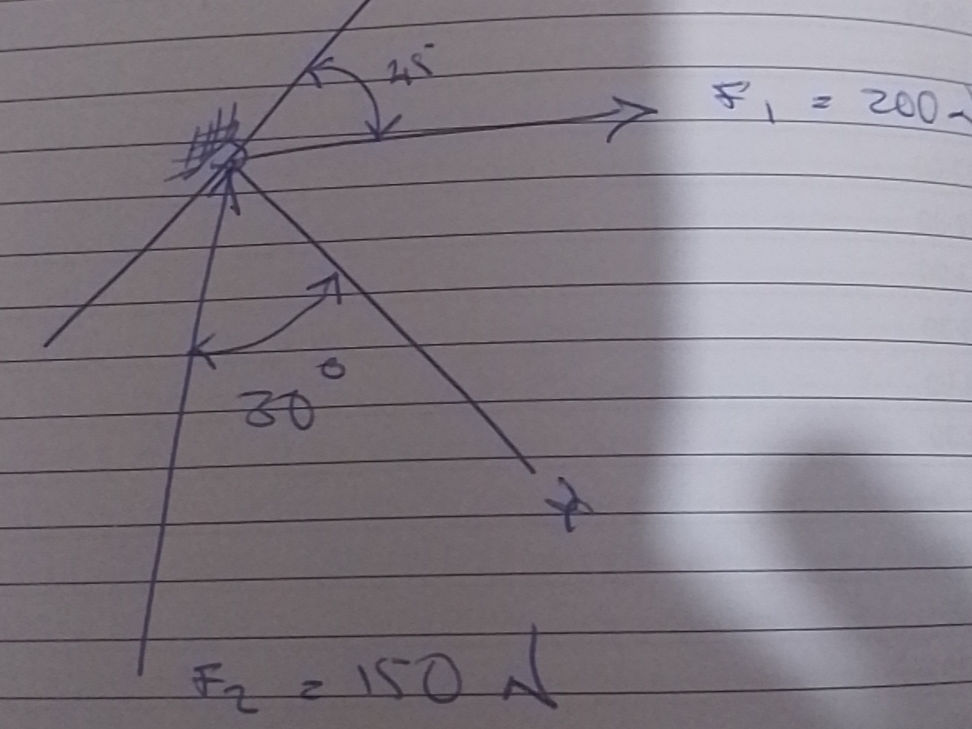 45
F₁ = 200
30°
x
F₂ = 150 N